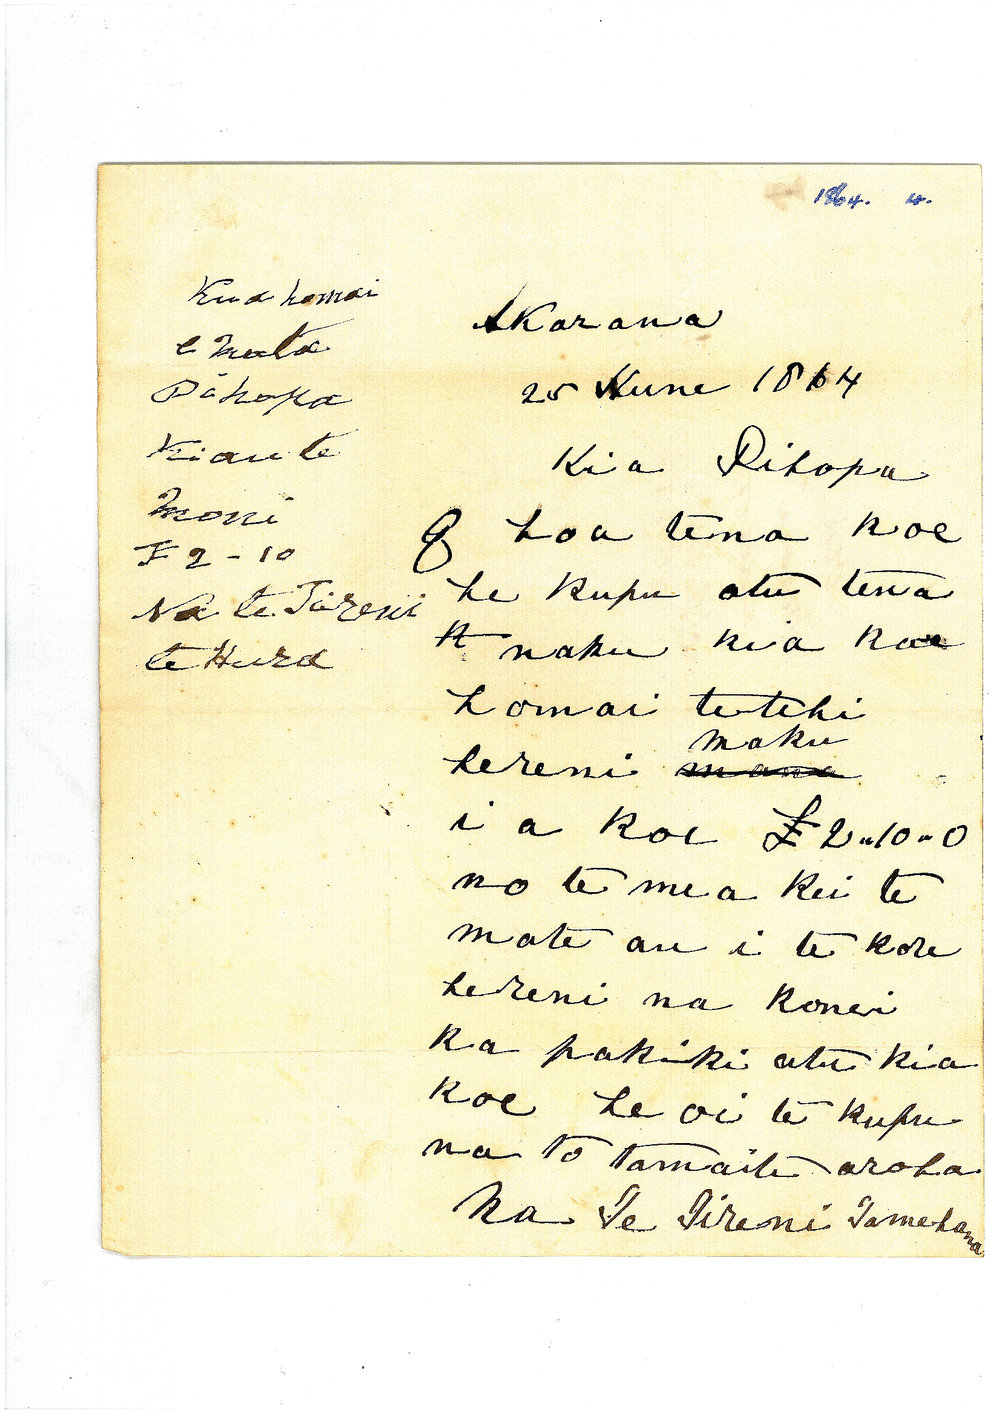 1864. 4.
Kua homai
e Mata
Pihopa
Kiau te
moni
£ 2 - 10
Na te Tireni
te Hura
Akarana
25 Hune 1864
Kia Pihopa
E hoa tena koe
he kupu atu tena
naku kia koe
homai tetehi
hereni maku
i a koe £2-10-0
no te mea kei te
mate au i te kore
hereni na konei
ka pakiki atu kia
koe he oi te kupu
na to tamaiti aroha
Na Te Tireni Tamehana